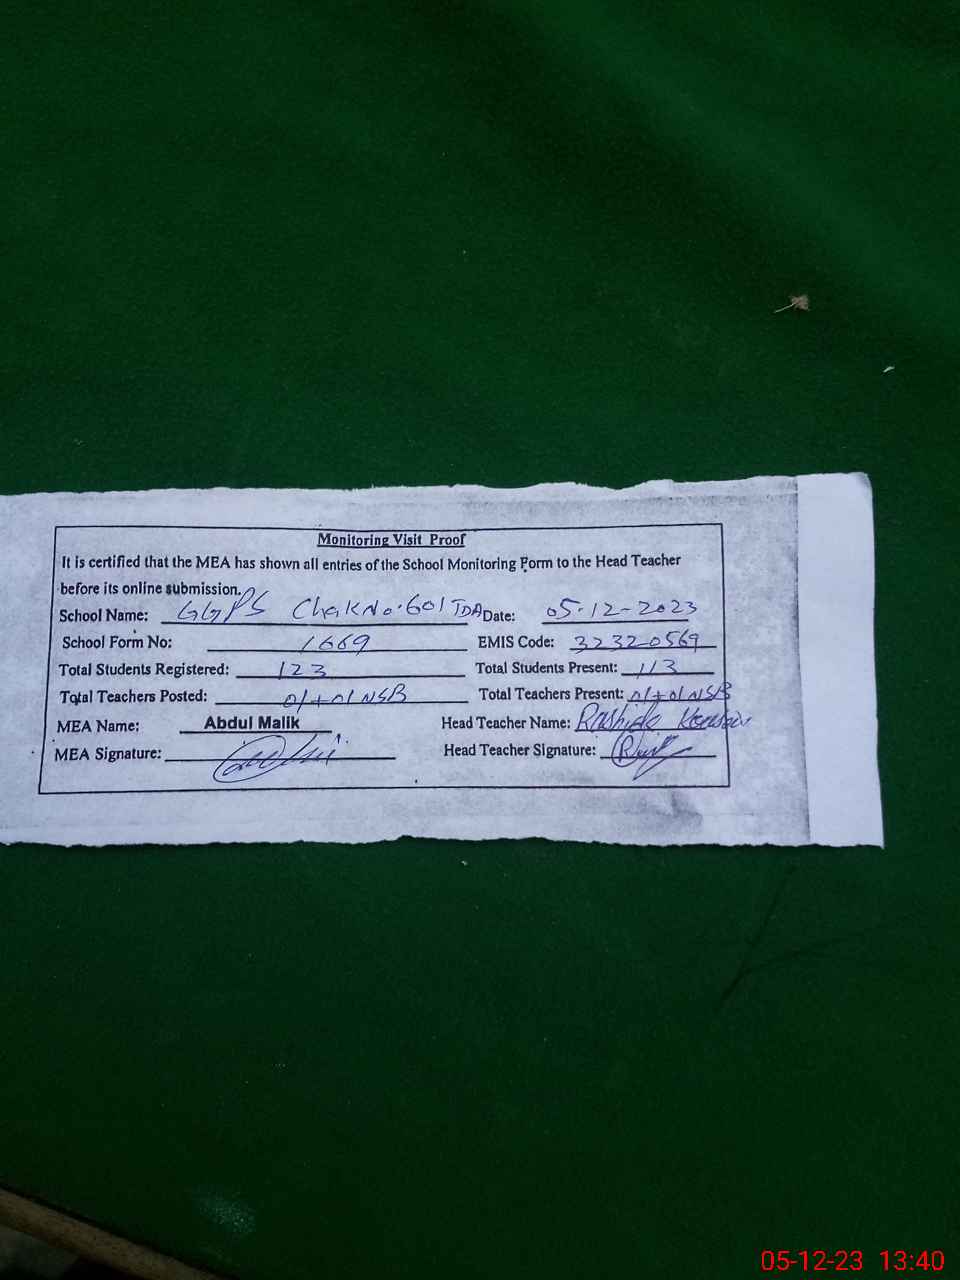 Monitoring Visit Proof
It is certified that the MEA has shown all entries of the School Monitoring Form to the Head Teacher
before its online submission.
School Name: GGPS Chak No. 601 TDA Date: 05-12-2023
School Form No: 1669 EMIS Code: 32320569
Total Students Registered: 123 Total Students Present: 113
Total Teachers Posted: 01+01 NSB Total Teachers Present: 01+01 NSB
MEA Name: Abdul Malik Head Teacher Name: Rashida
MEA Signature: Head Teacher Signature:
05-12-23 13:40